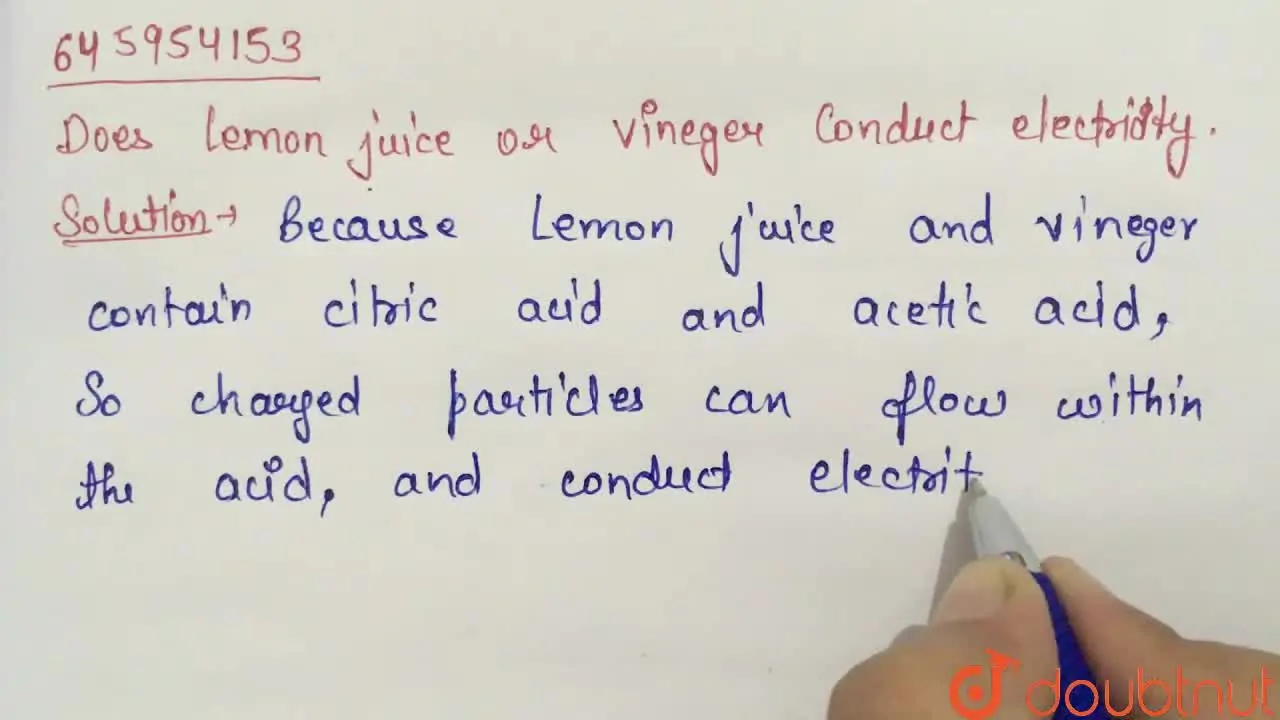 645954153
Does lemon juice or vineger Conduct electricity.
Solution→ Because Lemon juice and vineger
contain citric acid and acetic acid,
So charged particles can flow within
the acid, and conduct electrit
doubtnut